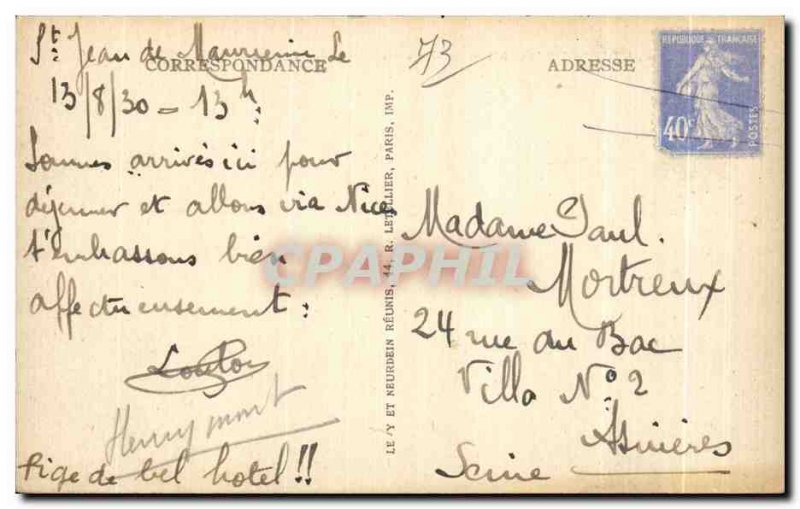 St Jean de Maurienne le
CORRESPONDANCE
13/8/30 - 13h:
Sommes arrivés ici pour
déjeuner et allons via Nice
t'embrassons bien
affectueusement:
Loulou
Henrymont
pige de bel hotel!!
LEVY ET NEURDEIN RÉUNIS, 44, R. LETELLIER, PARIS, IMP.
73
ADRESSE
RÉPUBLIQUE FRANÇAISE
40c
POSTES
Madame Paul.
Mortreux
24 rue du Bac
Villa No 2
Asnières
Seine
CPAPHIL